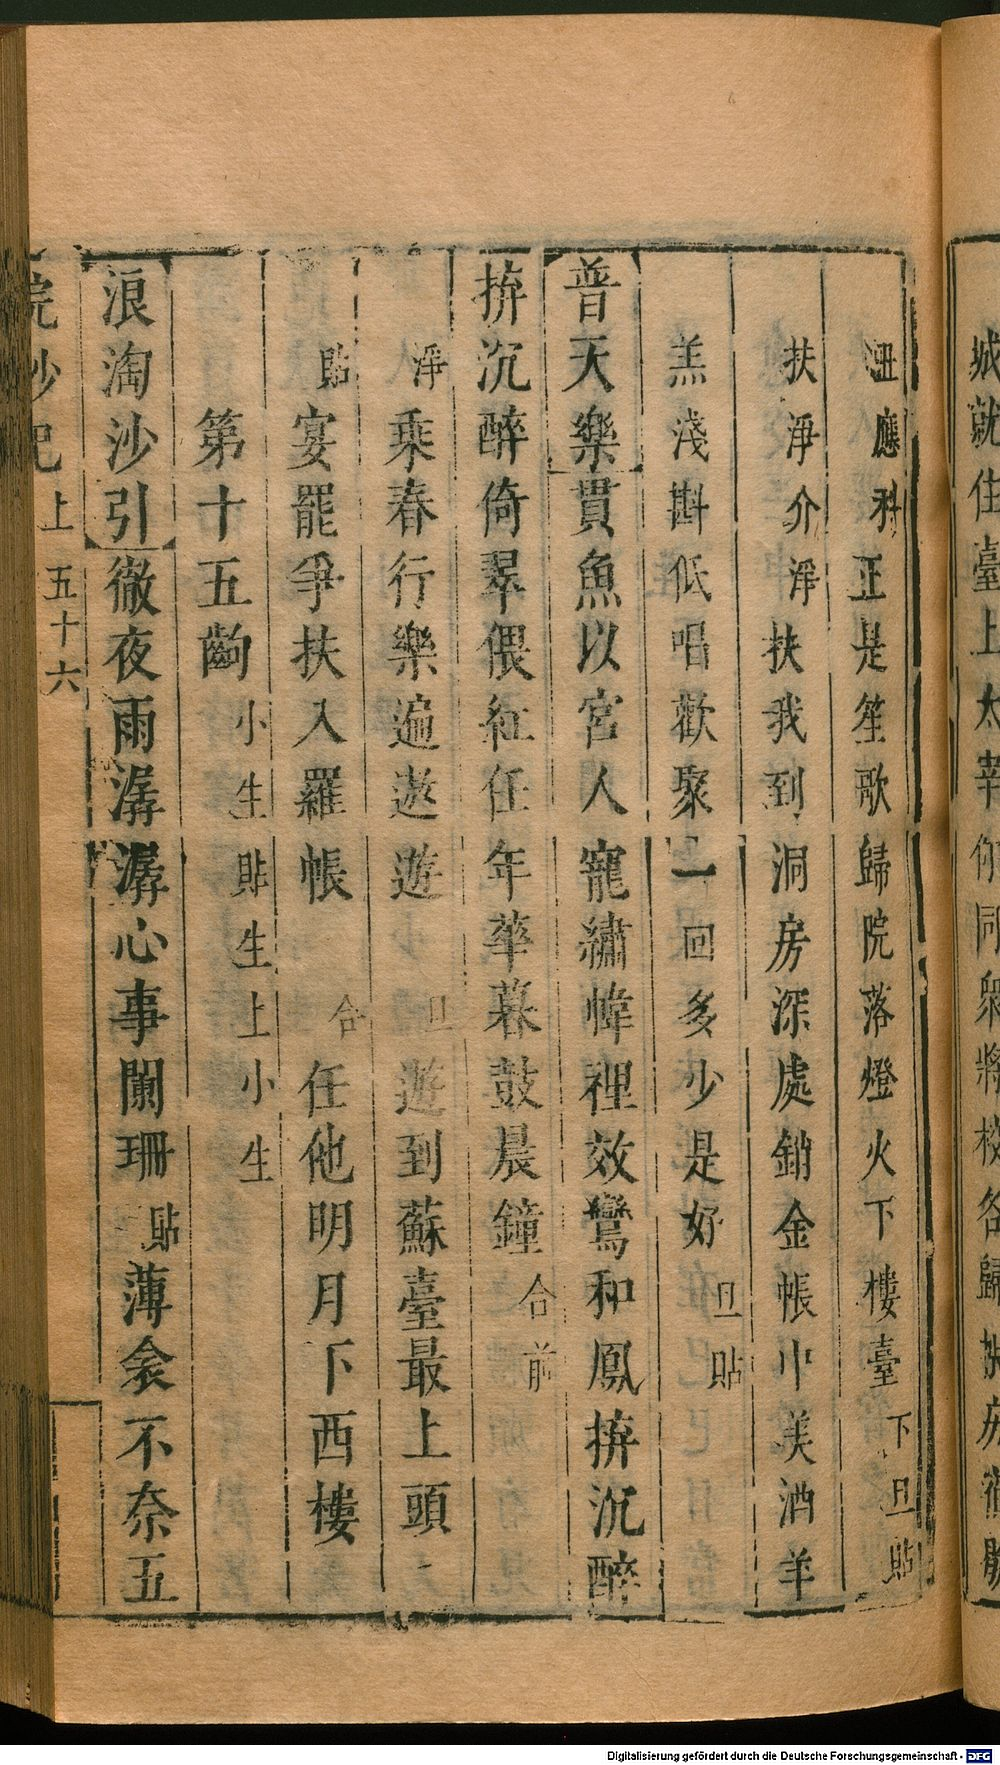 丑應科正是笙歌歸院落燈火下樓臺下旦貼
扶淨介淨扶我到洞房深處銷金帳中美酒羊
羔淺斟低唱歡聚一回多少是好旦貼
普天樂貫魚以宮人寵繡幃裡效鸞和鳳拚沉醉
拚沉醉倚翠偎紅任年華暮鼓晨鐘合前
淨乘春行樂遍遨遊旦遊到蘇臺最上頭
貼宴罷爭扶入羅帳合任他明月下西樓
第十五齣小生貼生上小生
浪淘沙引徹夜雨潺潺心事闌珊貼薄衾不奈五
浣紗記上五十六
城就住臺上太宰你同眾將校各歸
Digitalisierung gefördert durch die Deutsche Forschungsgemeinschaft - DFG